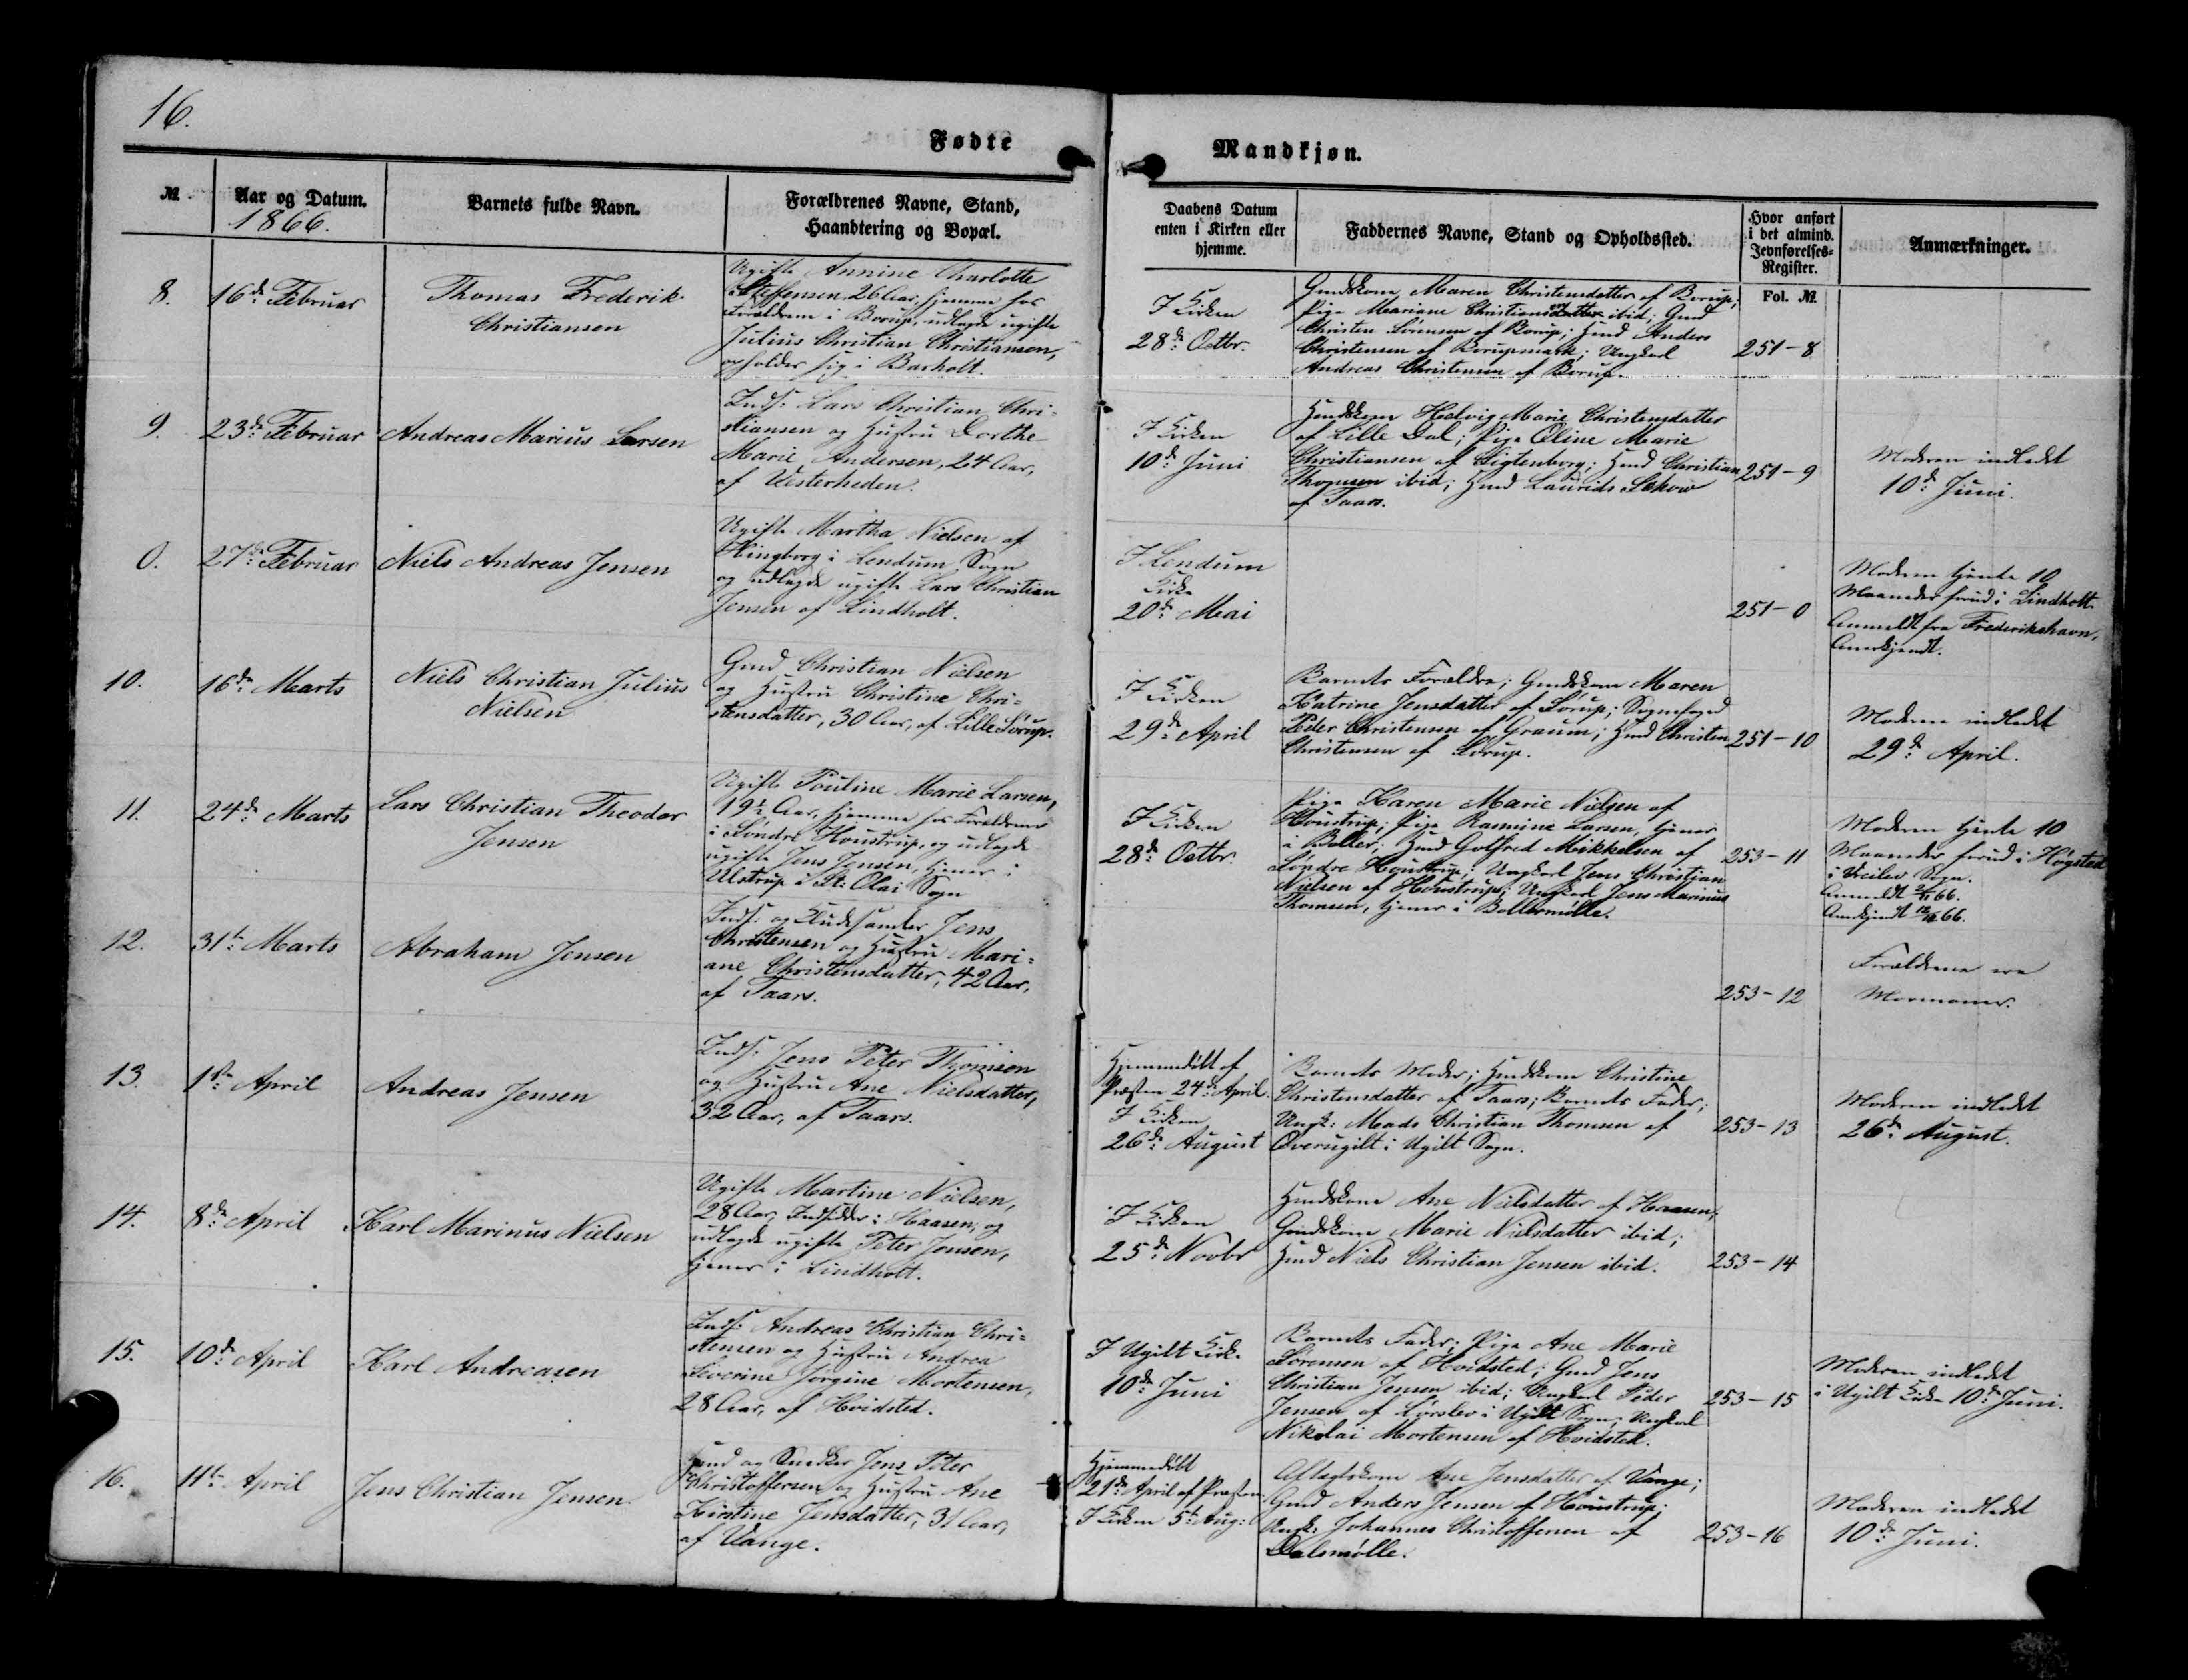 16.
Fødte
Mandkjøn.
№
Aar og Datum.
1866.
Barnets fulde Navn.
Forældrenes Navne, Stand,
Haandtering og Bopæl.
Daabens Datum
enten i Kirken eller
hjemme.
Faddernes Navne, Stand og Opholdssted.
Hvor anført
i det almind.
Jevnførelses-
Register.
Fol. №
Anmærkninger.
8.
16de Februar
Thomas Frederik
Christiansen
Ugifte Annine Charlotte
Steffensen, 26 Aar, hjemme hos
Forældrene i Borup, udlagde ugifte
Julius Christian Christiansen,
opholder sig i Barholt.
I Kirken
28de Octbr.
Gmdskone Maren Christensdatter af Borup;
Pige Mariane Christiansdatter ibid; Gmd
Christen Sørensen af Borup; Hmd Anders
Christensen af Borupmark; Ungkarl
Andreas Christensen af Borup.
251-8
9.
23de Februar
Andreas Marius Larsen
Inds: Lars Christian Chri=
stiansen og Hustru Dorthe
Marie Andersen, 24 Aar,
af Vesterheden.
I Kirken
10de Juni
Hmdskone Helvig Marie Christensdatter
af Lille Dal; Pige Oline Marie
Christiansen af Sigtenborg; Hmd Christian
Thomsen ibid; Hmd Laurids Schow
af Taars.
251-9
Moderen indledet
10de Juni.
0.
27de Februar
Niels Andreas Jensen
Ugifte Martha Nielsen af
Hingborg i Lendum Sogn
og udlagde ugifte Lars Christian
Jensen af Lindholt.
I Lendum
Kirke
20de Mai
251-0
Moderen tjente 10
Maaneder forud i Lindholt.
Anmeldt fra Frederikshavn.
Anerkjendt.
10.
16de Marts
Niels Christian Julius
Nielsen
Gmd Christian Nielsen
og Hustru Christine Chri=
stensdatter, 30 Aar, af Lille Sørup.
I Kirken
29de April
Barnets Forældre; Gmdskone Maren
Katrine Jensdatter af Sørup; Sognefoged
Peder Christensen af Graum; Hmd Christen
Christensen af Sørup.
251-10
Moderen indledet
29de April.
11.
24de Marts
Lars Christian Theodor
Jensen
Ugifte Pouline Marie Larsen,
19½ Aar, hjemme hos Forældrene
i Søndre Houstrup, og udlagde
ugifte Jens Jensen, tjener i
Ulstrup i St: Olai Sogn
I Kirken
28de Octbr.
Pige Karen Marie Nielsen af
Houstrup; Pige Rasmine Larsen, tjener
i Boller; Hmd Golfred Mikkelsen af
Søndre Houstrup; Ungkarl Jens Christian
Nielsen af Houstrup; Ungkarl Jens Marinus
Thomsen, tjener i Bollermølle.
253-11
Moderen tjente 10
Maaneder forud i Høgsted
i Vreilev Sogn.
12.
31te Marts
Abraham Jensen
Inds: og Kludesamler Jens
Christensen og Hustru Mari=
ane Christensdatter, 42 Aar,
af Taars.
253-12
Forældrene ere
Mormoner.
13.
1ste April
Andreas Jensen
Inds: Jens Peter Thomsen
og Hustru Ane Nielsdatter,
32 Aar, af Taars.
Hjemmedøbt af
Præsten 24de April.
I Kirken
26de August
Barnets Moder; Hmdskone Christine
Christensdatter af Taars; Barnets Fader;
Ungk: Mads Christian Thomsen af
Overugilt i Ugilt Sogn.
253-13
Moderen indledet
26de August.
14.
8de April
Karl Marinus Nielsen
Ugifte Martine Nielsen,
28 Aar, Indsidder i Haasen; og
udlagde ugifte Peter Jensen,
tjener i Lindholt.
I Kirken
25de Novbr
Hmdskone Ane Nielsdatter af Haasen;
Gmdskone Marie Nielsdatter ibid;
Hmd Niels Christian Jensen ibid.
253-14
15.
10de April
Karl Andreasen
Inds: Andreas Christian Chri=
stensen og Hustru Andrea
Severine Jørgine Mortensen,
28 Aar, af Hvidsted.
I Ugilt Kirke
10de Juni
Barnets Fader; Pige Ane Marie
Sørensen af Hvidsted; Gmd Jens
Christian Jensen ibid; Ungkarl Peder
Jensen af Lørslev i Ugilt Sogn; Ungkarl
Nikolai Mortensen af Hvidsted.
253-15
Moderen indledet
i Ugilt Kirke 10de Juni.
16.
11te April
Jens Christian Jensen.
Hmd og Snedker Jens Peter
Christoffersen og Hustru Ane
Kirstine Jensdatter, 31 Aar,
af Vange.
Hjemmedøbt
21de April af Præsten.
I Kirken 5te Aug:
Aftægtskone Ane Jensdatter af Vange;
Gmd Anders Jensen af Houstrup;
Ungk: Johannes Christoffersen af
Dalsmølle.
253-16
Moderen indledet
10de Juni.